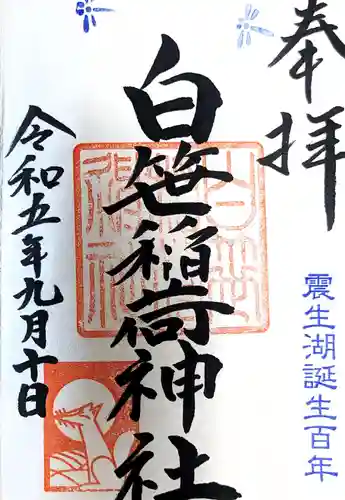 奉拝
震生湖誕生百年
白笹稲荷神社
令和五年九月十日